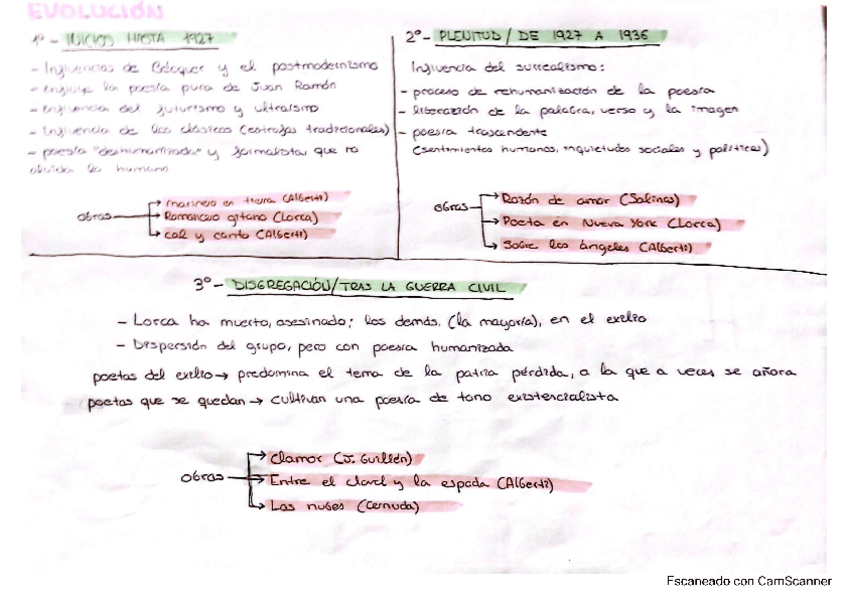 EVOLUCIÓN
1º - INICIOS HASTA 1927
- Influencias de Bécquer y el postmodernismo
- influye la poesía pura de Juan Ramón
- influencia del futurismo y ultraísmo
- Influencia de los clásicos (estrofas tradicionales)
- poesía "deshumanizada" y formalista, que no
olvida lo humano
obras
marinero en tierra (Alberti)
Romancero gitano (Lorca)
cal y canto (Alberti)
2º - PLENITUD / DE 1927 A 1936
Influencia del surrealismo:
- proceso de rehumanización de la poesía
- liberación de la palabra, verso y la imagen
- poesía trascendente
(sentimientos humanos, inquietudes sociales y políticas)
obras
Razón de amor (Salinas)
Poeta en Nueva York (Lorca)
Sobre los ángeles (Alberti)
3º - DISGREGACIÓN/TRAS LA GUERRA CIVIL
- Lorca ha muerto, asesinado; los demás, (la mayoría), en el exilio
- Dispersión del grupo, pero con poesía humanizada
poetas del exilio → predomina el tema de la patria pérdida, a la que a veces se añora
poetas que se quedan → cultivan una poesía de tono existencialista
obras
Clamor (J. Guillén)
Entre el clavel y la espada (Alberti)
Las nubes (Cernuda)
Escaneado con CamScanner